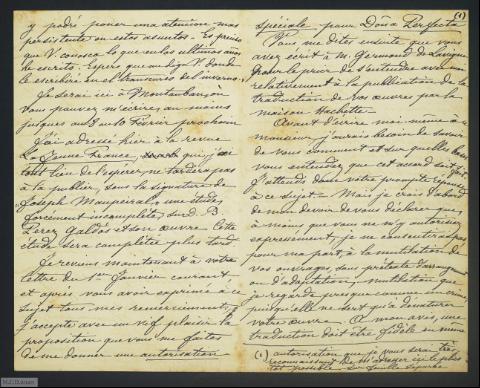 y podré poner una atencion mas
persistente en estos asuntos - Es preciso
que V conozca lo que en los ultimos años
he escrito - Espero que me diga V donde
le escribiré en el transcurso del invierno.
Je serai ici à Montauban
Vous pouvez m'écrire au moins
jusques au 8 ou 10 Février prochain
J'ai adressé hier à la revue
La Jeune France, que j'ai
tout lieu de l'espérer ne tardera pas
à la publier, sous la signature de
Joseph, une étude,
forcément incomplète, sur B
Perez Galdós et son œuvre cette
étude sera complétée plus tard
Je reviens maintenant à votre
lettre du 1er Janvier courant
et après vous avoir exprimé à ce
sujet tous mes remerciements,
j'accepte avec un vif plaisir la
proposition que vous me faites
de me donner une autorisation
(1)
spéciale pour Doña Perfecta
Vous me dites ensuite que vous
avez écrit à Mr Germond de Lavigne
pour le prier de s'entendre avec moi
relativement à la publication de la
traduction de vos œuvres par la
maison Hachette.
Avant d'écrire moi même à ce
monsieur, j'aurais besoin de savoir
de vous comment et sur quelles bases
vous entendez que cet accord soit fait.
J'attends donc votre prompte réponse
à ce sujet - Mais je crois d'abord
de mon devoir de vous déclarer que,
à moins que vous ne m'y autorisiez
expressément, je ne consentirai pas
pour ma part, à la mutilation de
vos ouvrages, sous prétexte d'arrangement
ou d'adaptation, mutilation que
je regarde presque comme un crime,
puisqu'elle ne sert qu'à dénaturer
votre œuvre. A mon avis, une
traduction doit être fidèle en même
(1) autorisation que je vous serai très
reconnaissant de m'envoyer le plus
tôt possible sur feuille séparée